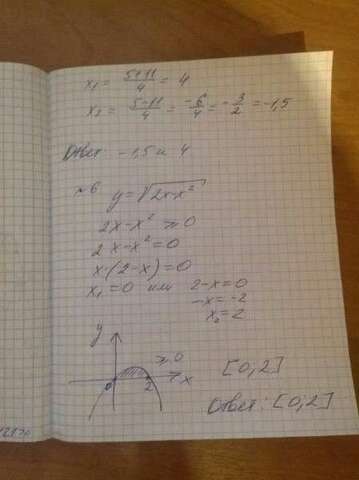 x₁ = (5+11)/4 = 4
x₂ = (5-11)/4 = -6/4 = -3/2 = -1,5
Ответ: -1,5 и 4
№6
y = √(2x-x²)
2x-x² ≥ 0
2x-x² = 0
x·(2-x) = 0
x₁ = 0 или 2-x = 0
-x = -2
x₂ = 2
y
≥ 0
0 2 x
[0;2]
Ответ: [0;2]